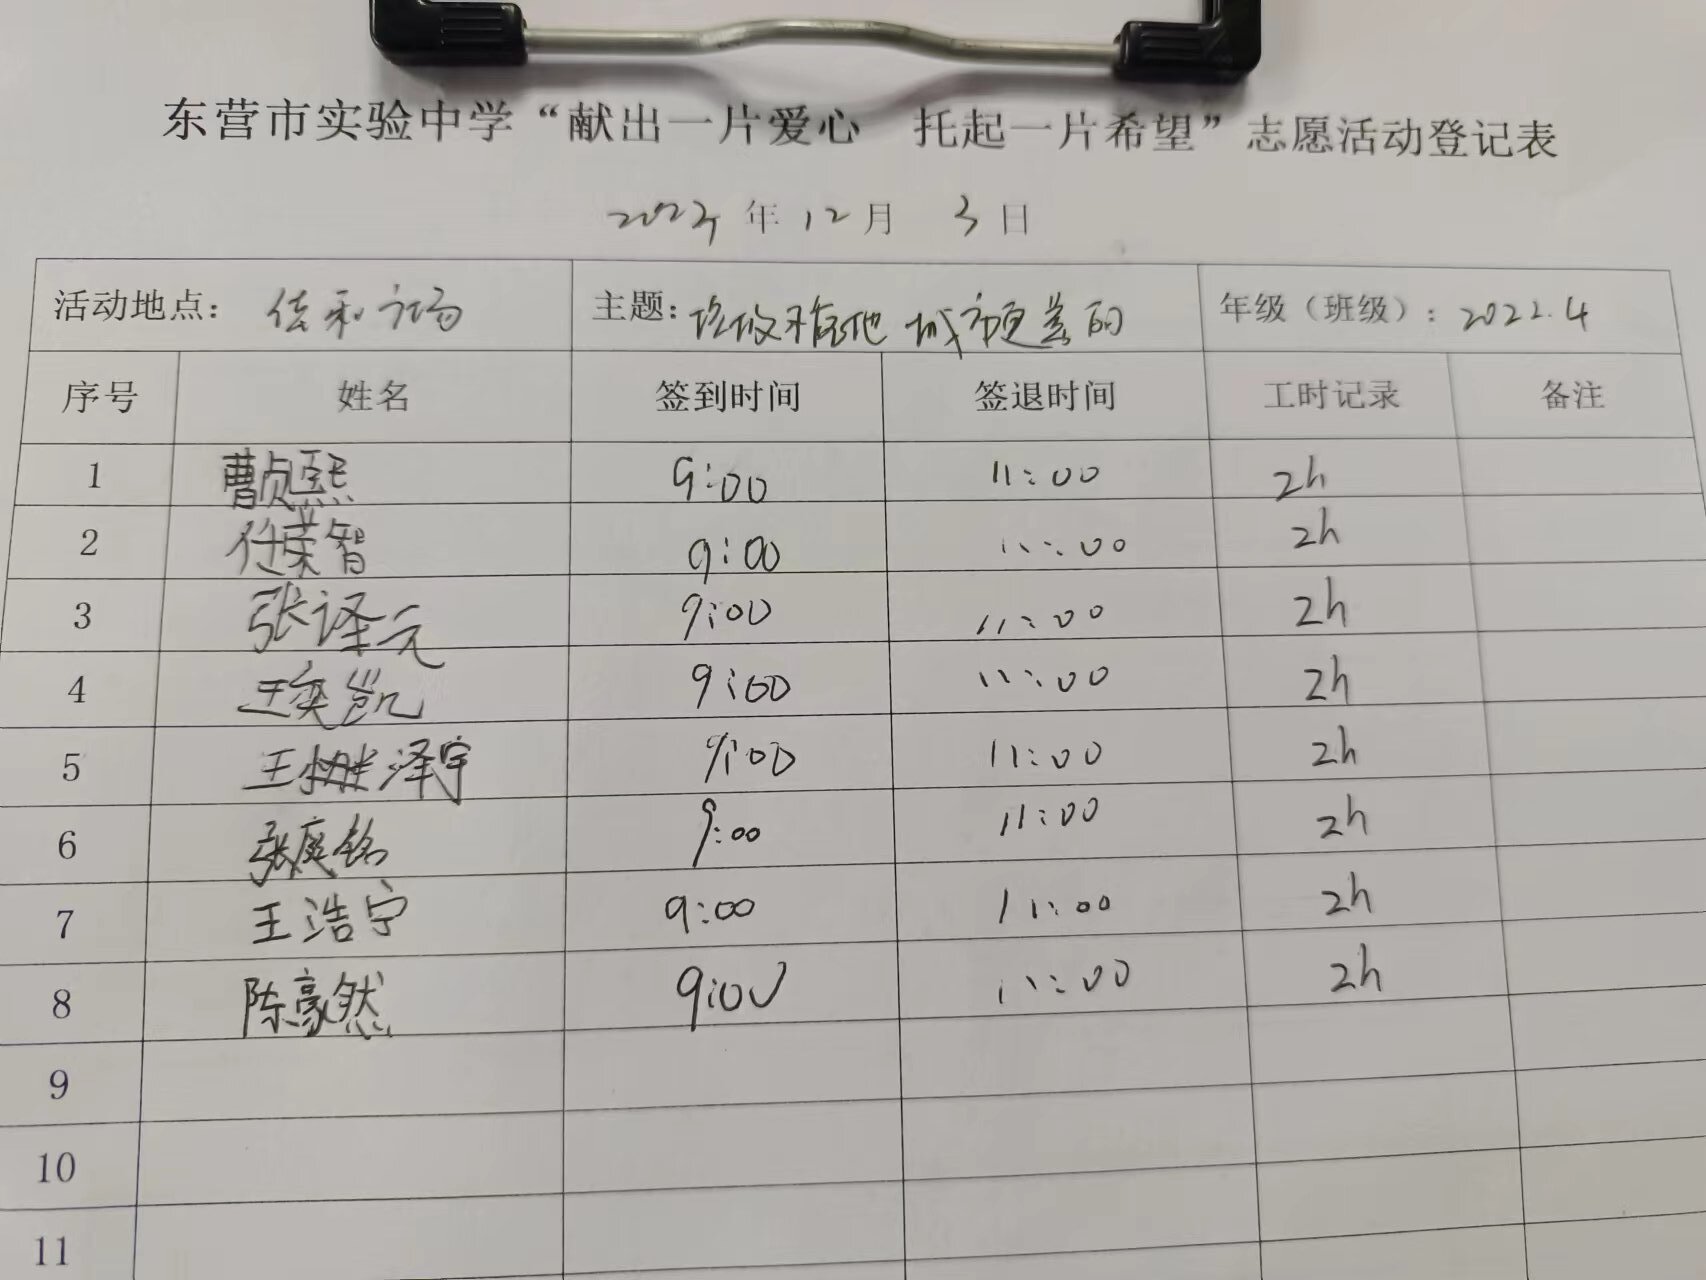 东营市实验中学“献出一片爱心 托起一片希望”志愿活动登记表
2023年12月3日
活动地点: 佳和广场 主题: 垃圾不落地 城市更美丽 年级（班级）: 2022.4
序号 姓名 签到时间 签退时间 工时记录 备注
1 曹贞熙 9:00 11:00 2h
2 任荣智 9:00 11:00 2h
3 张译元 9:00 11:00 2h
4 王奕凯 9:00 11:00 2h
5 王泽宇 9:00 11:00 2h
6 张庭铭 9:00 11:00 2h
7 王浩宁 9:00 11:00 2h
8 陈豪然 9:00 11:00 2h
9
10
11